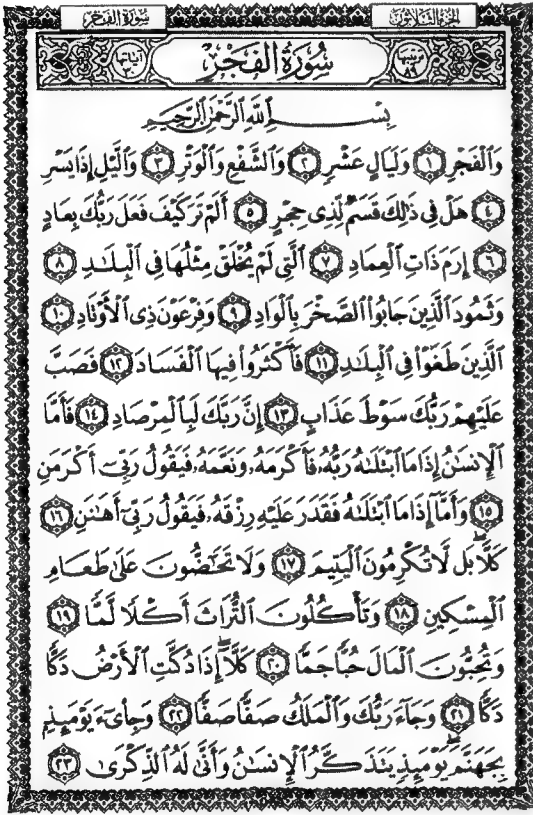 سورة الفجر الجزء الثلاثون
آياتها ٣٠ سُورَةُ الفَجْرِ ترتيبها ٨٩
بِسْمِ اللَّهِ الرَّحْمَٰنِ الرَّحِيمِ
وَالْفَجْرِ ١ وَلَيَالٍ عَشْرٍ ٢ وَالشَّفْعِ وَالْوَتْرِ ٣ وَالَّيْلِ إِذَا يَسْرِ
٤ هَلْ فِي ذَٰلِكَ قَسَمٌ لِّذِي حِجْرٍ ٥ أَلَمْ تَرَ كَيْفَ فَعَلَ رَبُّكَ بِعَادٍ
٦ إِرَمَ ذَاتِ الْعِمَادِ ٧ الَّتِي لَمْ يُخْلَقْ مِثْلُهَا فِي الْبِلَٰدِ ٨
وَثَمُودَ الَّذِينَ جَابُوا الصَّخْرَ بِالْوَادِ ٩ وَفِرْعَوْنَ ذِي الْأَوْتَادِ ١٠
الَّذِينَ طَغَوْا فِي الْبِلَٰدِ ١١ فَأَكْثَرُوا فِيهَا الْفَسَادَ ١٢ فَصَبَّ
عَلَيْهِمْ رَبُّكَ سَوْطَ عَذَابٍ ١٣ إِنَّ رَبَّكَ لَبِالْمِرْصَادِ ١٤ فَأَمَّا
الْإِنسَٰنُ إِذَا مَا ابْتَلَىٰهُ رَبُّهُۥ فَأَكْرَمَهُۥ وَنَعَّمَهُۥ فَيَقُولُ رَبِّي أَكْرَمَنِ
١٥ وَأَمَّا إِذَا مَا ابْتَلَىٰهُ فَقَدَرَ عَلَيْهِ رِزْقَهُۥ فَيَقُولُ رَبِّي أَهَٰنَنِ ١٦
كَلَّا ۖ بَل لَّا تُكْرِمُونَ الْيَتِيمَ ١٧ وَلَا تَحَٰضُّونَ عَلَىٰ طَعَامِ
الْمِسْكِينِ ١٨ وَتَأْكُلُونَ التُّرَاثَ أَكْلًا لَّمًّا ١٩
وَتُحِبُّونَ الْمَالَ حُبًّا جَمًّا ٢٠ كَلَّا ۖ إِذَا دُكَّتِ الْأَرْضُ دَكًّا
دَكًّا ٢١ وَجَاءَ رَبُّكَ وَالْمَلَكُ صَفًّا صَفًّا ٢٢ وَجِايءَ يَوْمَئِذٍ
بِجَهَنَّمَ ۚ يَوْمَئِذٍ يَتَذَكَّرُ الْإِنسَٰنُ وَأَنَّىٰ لَهُ الذِّكْرَىٰ ٢٣